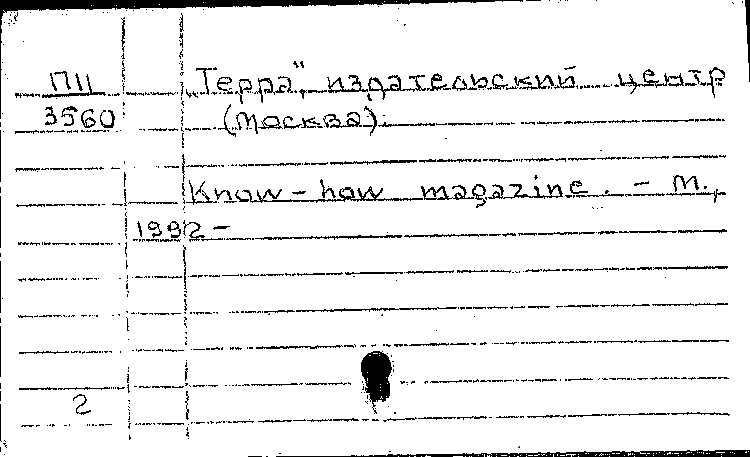 П11 „Терра“, издательский центр
3560 (Москва).
Know-how magazine. - М.,
1992-
2